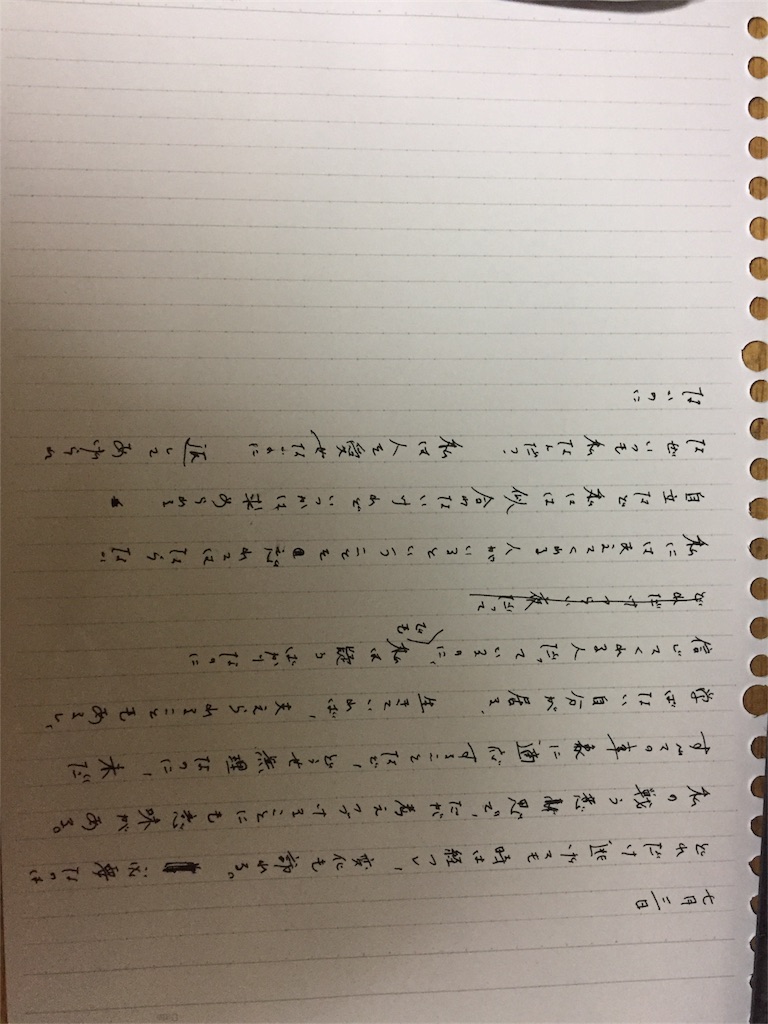 七月二日
どれだけ逃げても時は経つし、変化も訪れる。必要なのは
私の戦う意思で、だが考えつづけることにも意味がある。
すべての事象に適応することなど、どうせ無理なのに、未だ
学ばない自分が居る。生きていれば、支えられることもあるし、
信じてくれる人だっているのに、でも私は疑うばかりなのに
どれだけつらい夜だって
私には支えてくれる人がいるということを忘れてはならない
自立など私には似合わないけれどいつかは求められる
なぜいつも私なんだ? 私は人を愛せないのに 返してあげられ
ないのに